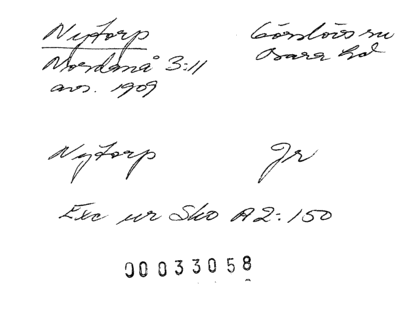 Nytorp Görslövs sn
Nordanå 3:11 Bara hd
avs. 1909
Nytorp Jr
Exc ur Sko A2:150
00033058